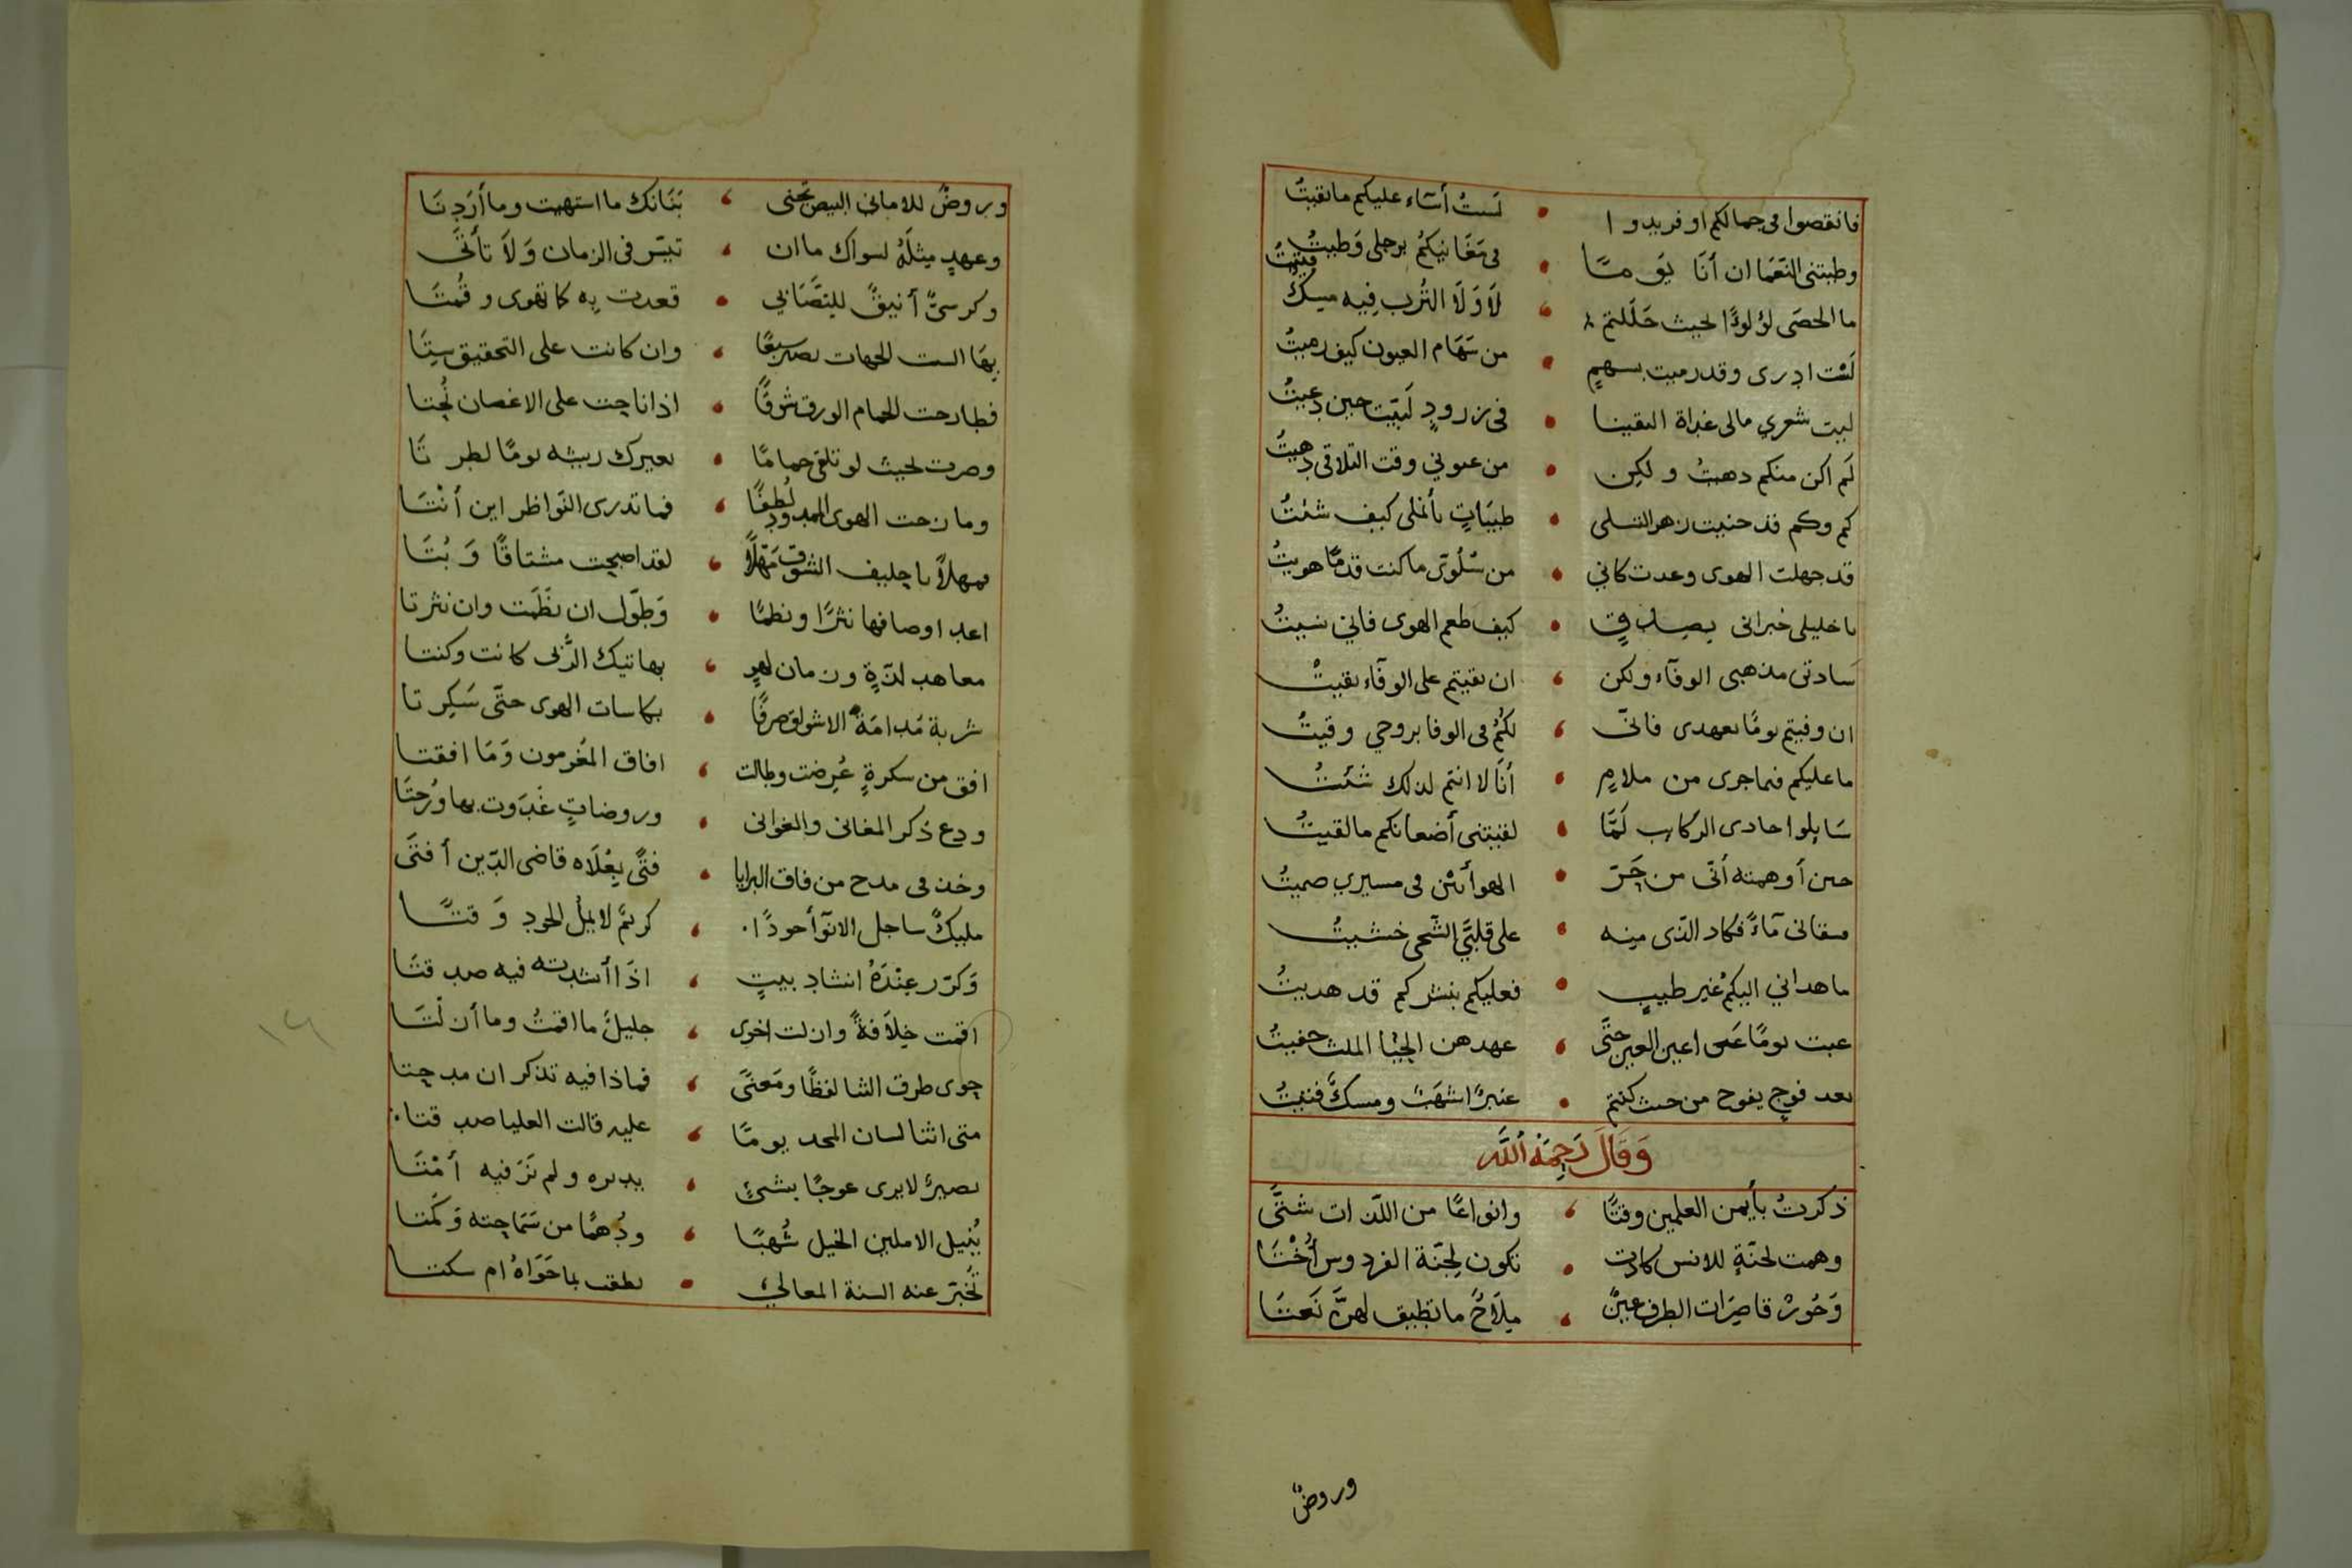 فانقصوا في جمالكم او فريدوا • لست أشاء عليكم ما بقيتُ
وطبتني النعما ان أنا يَومًا • في مَغَانيكمُ برحلي وَطيبُ
ما الحصَى لؤلوًا لحيث حَلَلتم • لَا وَلَا التُرب فِيه مِسكٌ فتيتُ
لَسْت ادرى وقد رميت بسهمٍ • من سَهَام العيون كيف رميتُ
ليت شعري مالى غداة التقينا • في زرودٍ لَبيّت حين دعيتُ
لَم اكن منكم دهيتُ ولكِن • من عيوني وقت التلاقى دهيتُ
كم وكم قد جنيت زهر التسلى • طيبَاتٍ بأنملى كيف شئتُ
قد جهلت الهوى وعدت كاني • من سُلُوّى ما كنت قدمًا هويتُ
يا خليلى خبرانى بصِدقٍ • كيف طعم الهوى فاني نسيتُ
سَادتى مذهبى الوفآء ولكن ، ان بقيتم على الوفآء بقيتُ
ان وفيتم يومًا بعهدى فانّى ، لكُمُ في الوفا بروحي وقيتُ
ما عليكم فيما جرى من ملامٍ • أنا لا انتم لذلك شئتُ
سَايلوا حادى الركاب لَمَّا • لقيتنى أضعانكم ما لقيتُ
حين أوهمته أنّى من حَرّ • الهوا ئن في مسيري صميتُ
فسقانى مآءً فكاد الذى مِنه • على قلبَّي الشّجى خشيتُ
ما هداني اليكمُ غير طيبٍ • فعليكم بنشركم قد هديتُ
غبت يومًا عَن اعين العين حَتّى ، عهدهن الحيَا الملث خفيتُ
بعد فوحٍ يفوح من حيث كنتم • عنبرًا اشهَبً ومسكً فتيتُ
وَقَالَ رَحِمَهُ اللَّه
ذكرتُ بأيمن العلمين وقتًا ، وانواعًا من اللّذات شتَّى
وهمت لجنّةٍ للانس كادت • تكون لِجنّة الفردوس أُخْتَا
وَحُورٌ قاصِرَات الطرف عِينٌ ، مِلَاحٌ ما تطيق لهنَّ نَعتَا
وروضٌ
وروضٌ للامانى البيض تُجنى ، بَنَانك ما اشتهيت وما أرَدتَا
وعهدٍ مِثلَهُ لسواك ما ان ، تيسّر في الزمان وَلَا تأتَّى
وكرسىٌّ أنيقٌ للتصَابي • قعدت بِه كما تهوى وقُمتَا
بِهَا الست الجهات تصير سبعًا ، وان كانت على التحقيق سِتّا
فطارحت الحمام الورق شوقًا • اذا ناحت على الاغصان نُحتا
وصرت لحيث لو تلقى حمامًا • يعيرك ريشه يومًا لطرتَا
ومازحت الهوى الممدود لُطفًا ، فما تدرى النّواظر اين أنْتَا
فمهلًا يا حليف الشوق مَهلًا ، لقد اصبحت مشتاقًا وَبُتَا
اعد اوصافها نثرًا ونظمًا • وَطوّل ان نظَمت وان نثرتا
معاهد لذةٍ وزمان لهوٍ ، بهاتيك الرُّبى كانت وكنتا
شربت مُدامَة الاشواق صرفًا • بكاسات الهوى حتّى سَكِرتا
افق من سكرةٍ عُرِضت وطالت ، افاق المُغرمون وَمَا افقتا
ودع ذكر المغانى والغوانى • وروضاتٍ غَدَوت بها ورُحتَا
وخذ فى مدح من فاق البرايا • فتًى بِعُلَاه قاضى الدّين أفتَى
مليكٌ ساجل الانوآ جودًا ، كريمٌ لا يملُّ الجود وَقتًا
وَكرّر عِنْدَهُ انشاد بيتٍ ، اذَا أنشدته فيه صدقتَا
اقمت خِلَافةً وازلت اخرى ، جليلٌ ما اقمتُ وما أزلْتَا
حوى طرق الثنا لفظًا ومَعنًى ، فماذا فيه تذكر ان مدحتا
متى اثنا لسان المجد يومًا ، عليه قالت العليا صدقتا
بصيرٌ لا يرى عوجًا بشئٍ • يدبره ولم تَرَ فيه أمْتَا
يُنيل الاملين الخيل شُهبًا ، ودُهمًا من سَمَاحته وَكُمتَا
تُخبّر عنه السنة المعالي • نطقت بما حَوَاهُ ام سكتا